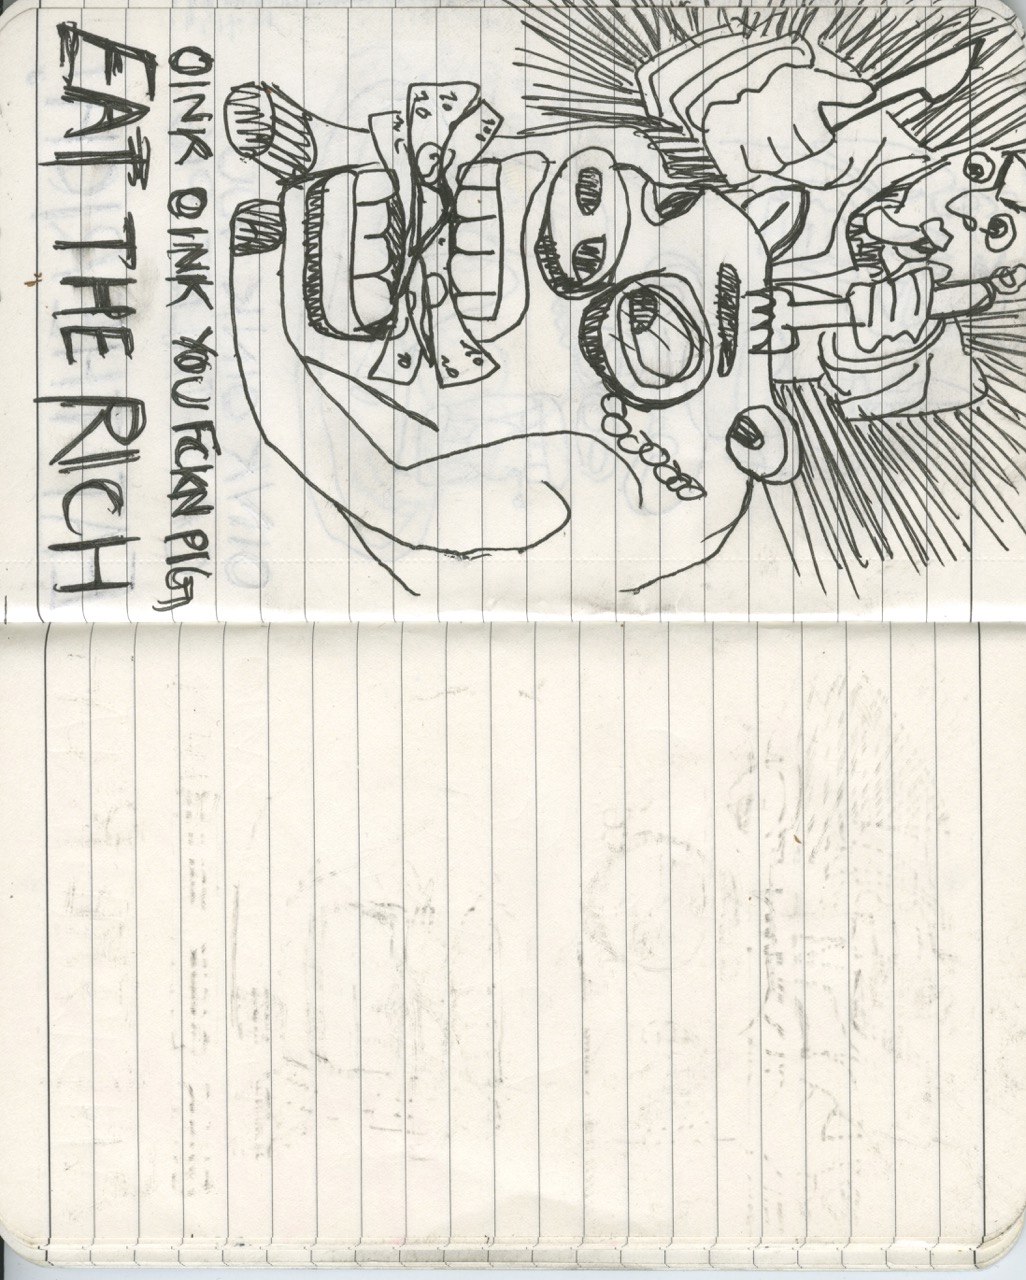 OINK OINK YOU FCKN PIG
EAT THE RICH